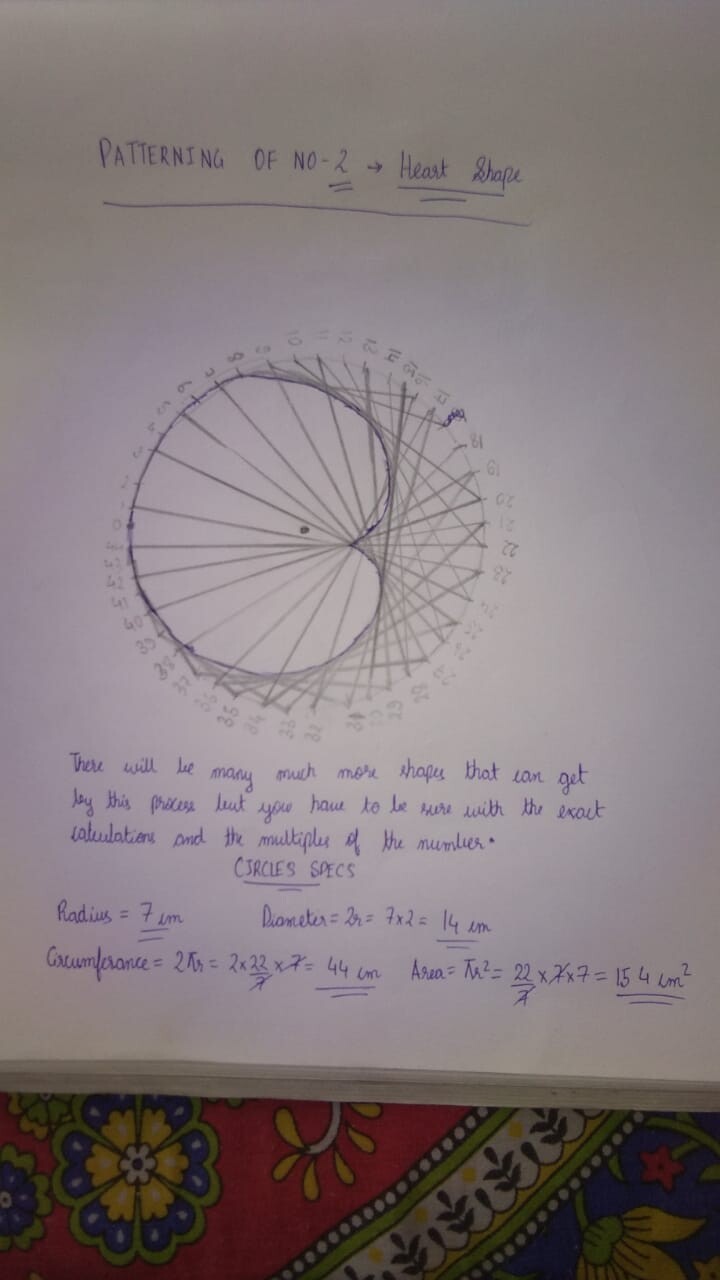 PATTERNING OF NO-2 → Heart Shape
0 1 2 3 4 5 6 7 8 9 10 11 12 13 14 15 16 17 18 19 20 21 22 23 24 25 26 27
29 30 31 32 33 34 35 36 37 38 39 40 41 42 43
There will be many much more shapes that can get
by this process but you have to be sure with the exact
calculations and the multiples of the number.
CIRCLES SPECS
Radius = 7 cm Diameter = 2r = 7x2 = 14 cm
Circumferance = 2πr = 2x22/7 x 7 = 44 cm Area = πr² = 22/7 x7x7 = 154 cm²